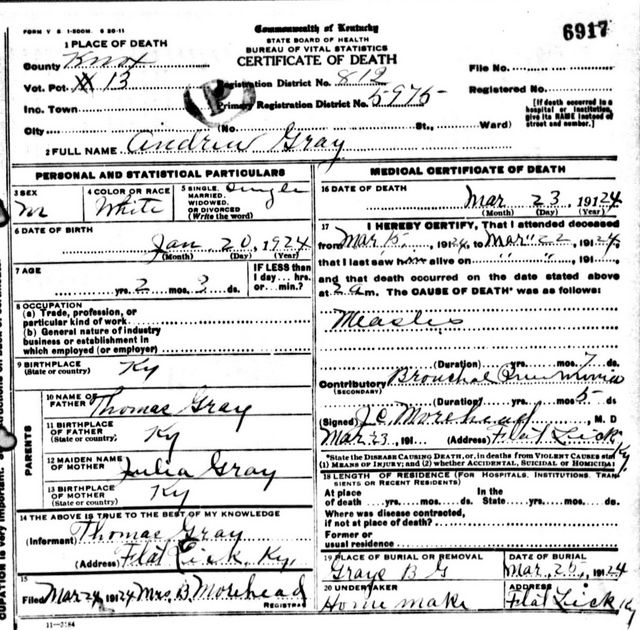 FORM V S 1-500M. 6 20-11
Commonwealth of Kentucky
STATE BOARD OF HEALTH
BUREAU OF VITAL STATISTICS
CERTIFICATE OF DEATH
6917
1 PLACE OF DEATH
County Knox
Vot. Pct. 13
Inc. Town
City
Registration District No. 812
Primary Registration District No. 5975
(No. St., Ward)
File No.
Registered No.
[If death occurred in a
hospital or institution,
give its NAME instead of
street and number.]
2 FULL NAME Andrew Gray
PERSONAL AND STATISTICAL PARTICULARS
3 SEX
M
4 COLOR OR RACE
White
5 SINGLE,
MARRIED,
WIDOWED,
OR DIVORCED
(Write the word)
Single
6 DATE OF BIRTH
Jan 20, 1924
(Month) (Day) (Year)
7 AGE
yrs. 2 mos. 3 ds.
IF LESS than
1 day... hrs.
or... min.?
8 OCCUPATION
(a) Trade, profession, or
particular kind of work
(b) General nature of industry
business or establishment in
which employed (or employer)
9 BIRTHPLACE
(State or country)
Ky
PARENTS
10 NAME OF
FATHER Thomas Gray
11 BIRTHPLACE
OF FATHER
(State or country)
Ky
12 MAIDEN NAME
OF MOTHER Julia Gray
13 BIRTHPLACE
OF MOTHER
(State or country)
Ky
14 THE ABOVE IS TRUE TO THE BEST OF MY KNOWLEDGE
(Informant) Thomas Gray
(Address) Flat Lick, Ky,
15
Filed Mar 24, 1924 Mrs. B. Morehead
REGISTRAR
11-3184
MEDICAL CERTIFICATE OF DEATH
16 DATE OF DEATH
Mar 23, 19124
(Month) (Day) (Year)
17 I HEREBY CERTIFY, That I attended deceased
from Mar 15, 19124, to Mar 22, 19124
that I last saw him alive on " " ", 191
and that death occurred on the date stated above
at 2 a m. The CAUSE OF DEATH* was as follows:
Measles
(Duration) yrs. mos. 7 ds.
Contributory Bronchal Pneumonia
(SECONDARY)
(Duration) yrs. mos. 5 ds.
(Signed) J.C. Morehead, M. D
Mar 23, 191 (Address) Flat Lick Ky
*State the DISEASE CAUSING DEATH, or, in deaths from VIOLENT CAUSES state
(1) MEANS OF INJURY; and (2) whether ACCIDENTAL, SUICIDAL or HOMICIDAL
18 LENGTH OF RESIDENCE (FOR HOSPITALS, INSTITUTIONS, TRANSIENTS OR RECENT RESIDENTS)
At place
of death yrs. mos. ds.
In the
State yrs. mos. ds.
Where was disease contracted,
if not at place of death?
Former or
usual residence
19 PLACE OF BURIAL OR REMOVAL
Grays B G
DATE OF BURIAL
Mar, 25, 19124
20 UNDERTAKER
Home make
ADDRESS
Flat Lick Ky